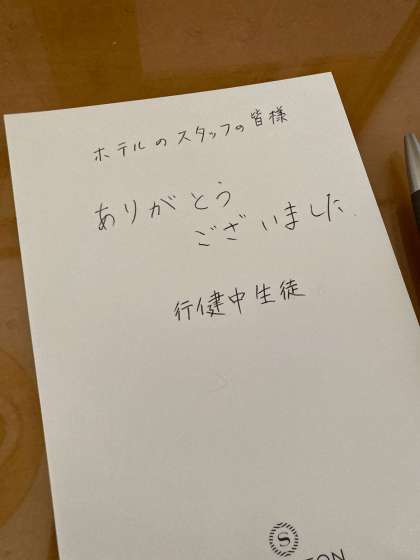 ホテルのスタッフの皆様
ありがとう
ございました.
行健中生徒
S
TON